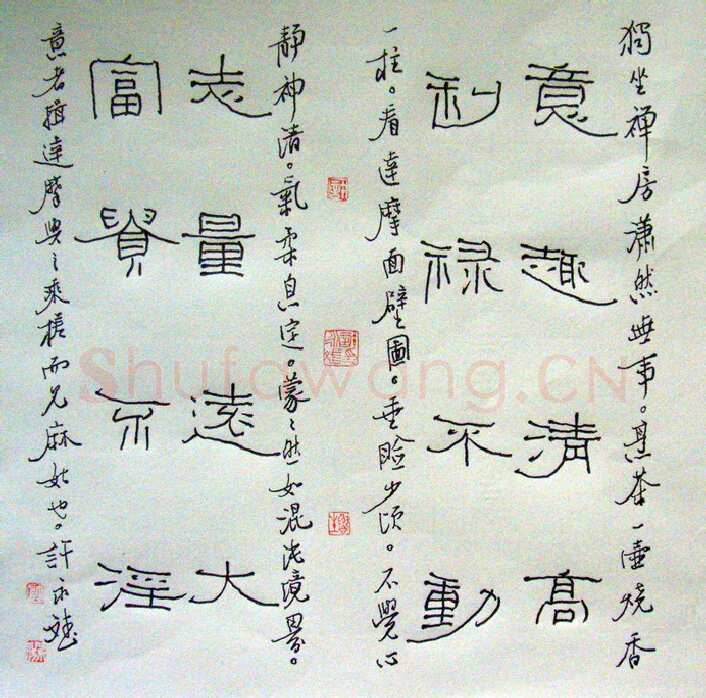 獨坐禪房瀟然無事。烹茶一壺燒香
意趣清高
利祿不動
一柱。看達摩面壁圖。垂瞼少頃。不覺心
靜神清。氣柔息定。蒙〻然如混沌境界。
志量遠大
富貴不淫
意者揖達摩與之乘槎而見麻姑也。許永
Shufawang.CN